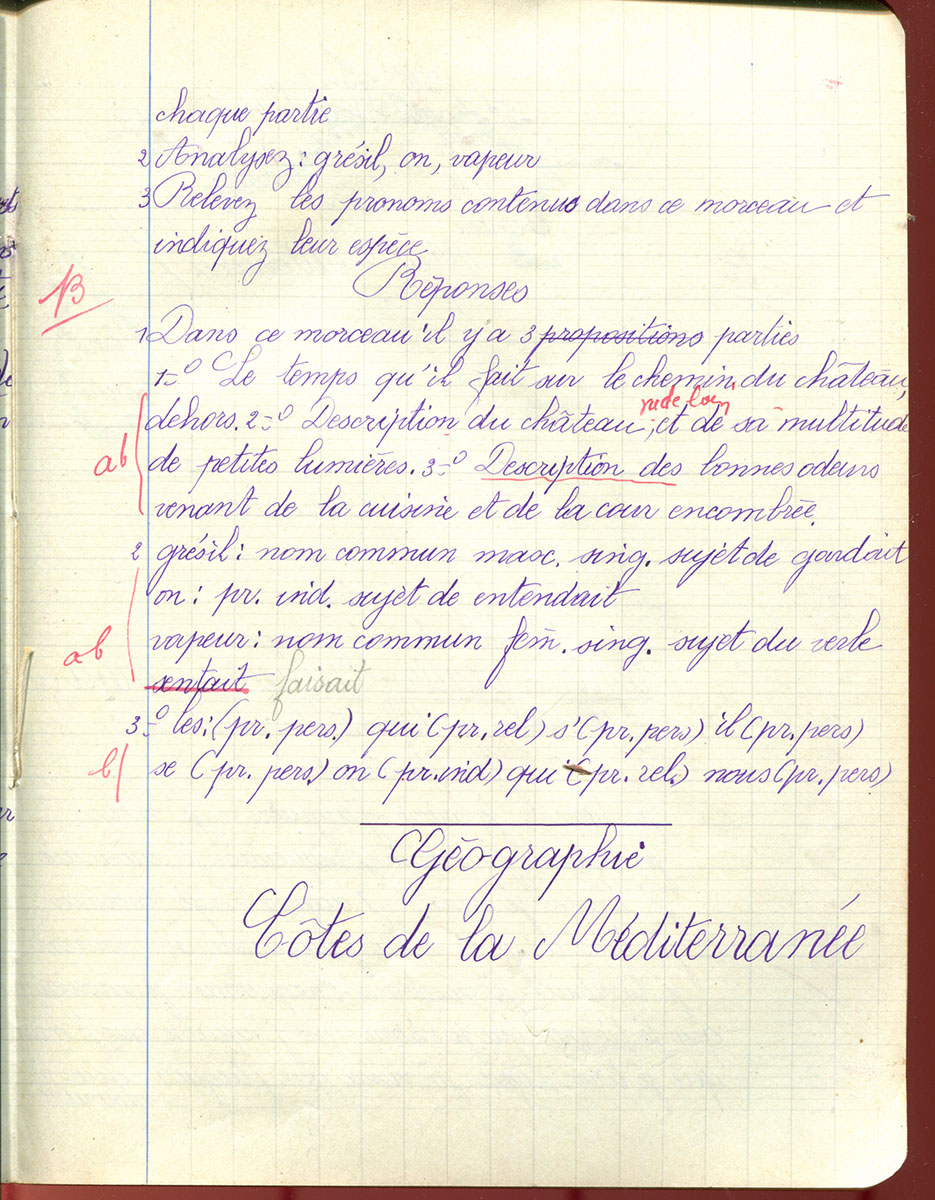 chaque partie
2 Analysez : grésil, on, vapeur
3 Relevez les pronoms contenus dans ce morceau et
indiquez leur espèce
Réponses
B
1 Dans ce morceau il y a 3 propositions parties
1=º Le temps qu'il fait sur le chemin du château,
vu de loin
dehors. 2=º Description du château, et de sa multitude
ab de petites lumières. 3=º Description des bonnes odeurs
venant de la cuisine et de la cour encombrée.
2 grésil : nom commun masc. sing. sujet de gardait
on : pr. ind. sujet de entendait
ab vapeur : nom commun fém. sing. sujet du verbe
enfait faisait
3=º les : (pr. pers.) qui (pr. rel) s' (pr. pers) il (pr. pers)
b se (pr. pers) on (pr. ind) qui (pr. rel.) nous (pr. pers)
Géographie
Côtes de la Méditerranée